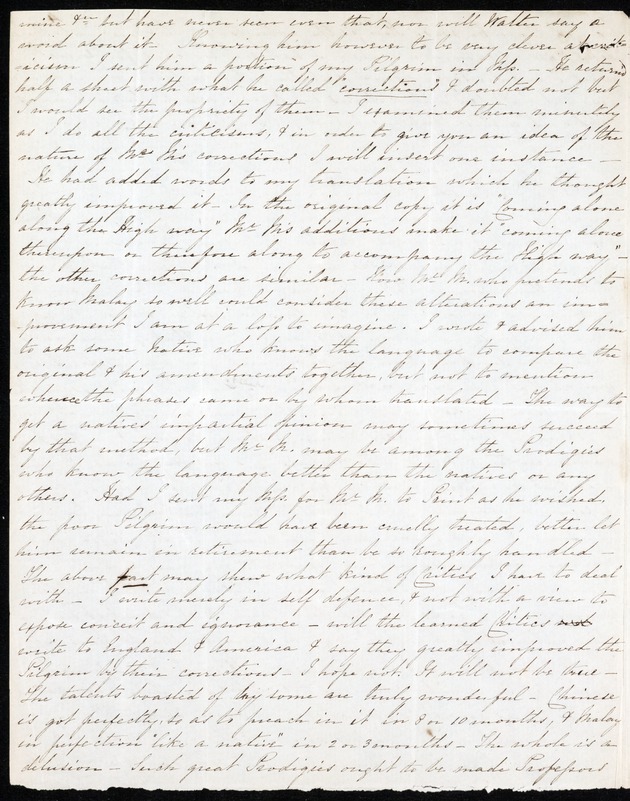 mine &c but have never seen even that, nor will Walter say a
word about it. Knowing him however to be very clever at
I sent him a portion of my Pilgrim in Mss. — He returned
half a sheet with what he called "corrections" & doubted not but
I would see the propriety of them — I examined them minutely
as I do all the criticisms, & in order to give you an idea of the
nature of Mr M's corrections I will insert one instance —
He had added words to my translation which he thought
greatly improved it — In the original copy it is "Coming alone
along the High way" Mr M's additions make it "coming alone
thereupon or therefore along to accompany the High way" —
the other corrections are similar — How Mr M. who pretends to
know Malay so well could consider these alterations an im=
=provement I am at a loss to imagine. I wrote & advised him
to ask some Native who knows the language to compare the
original & his amendments together, but not to mention
whence the phrases came or by whom translated — The way to
get a natives' impartial opinion may sometimes succeed
by that method, but Mr M. may be among the Prodigies
who know the language better than the natives or any
others. Had I sent my Mss. for Mr M. to Print as he wished,
the poor Pilgrim would have been cruelly treated, better let
him remain in retirement than be so roughly handled —
The above part may shew what kind of Critics I have to deal
with — I write merely in self defence, & not with a view to
expose conceit and ignorance — will the learned Critics
write to England & America & say they greatly improved the
Pilgrim by their corrections — I hope not. It will not be true —
The talents boasted of by some are truly wonderful — Chinese
is got perfectly, so as to preach in it in 8 or 10 months, & Malay
in perfection "like a native" in 2 or 3 months — The whole is a
delusion — Such great Prodigies ought to be made Professors